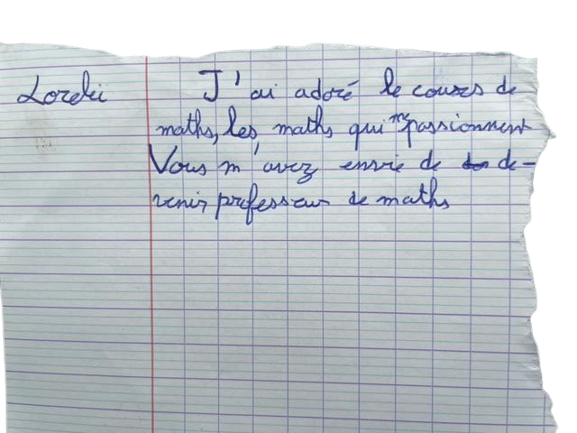 Loreleï J'ai adoré le cours de
maths, les maths qui me passionnent
Vous m'avez envie de de-
venir professeur de maths